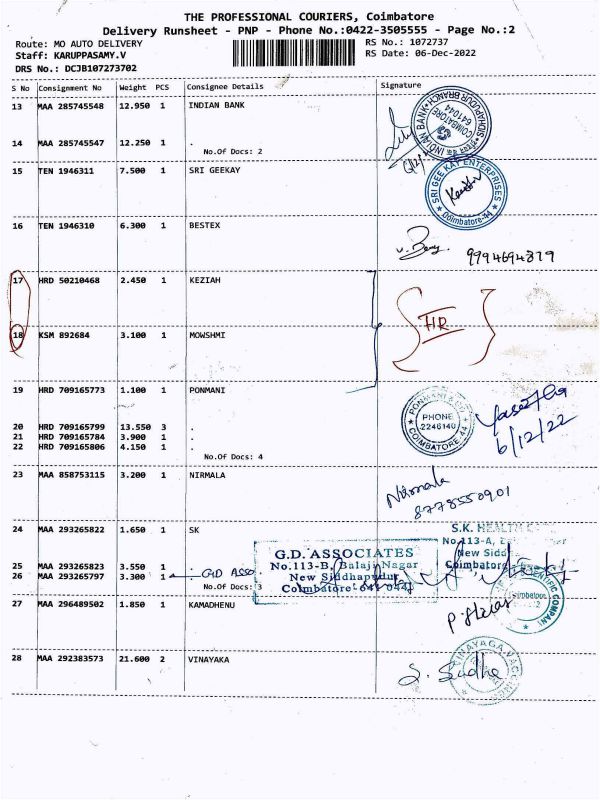 THE PROFESSIONAL COURIERS, Coimbatore
Delivery Runsheet - PNP - Phone No.:0422-3505555 - Page No.:2
Route: MO AUTO DELIVERY
RS No.: 1072737
Staff: KARUPPASAMY.V
RS Date: 06-Dec-2022
DRS No.: DCJB107273702
S No Consignment No Weight PCS Consignee Details Signature
13 MAA 285745548 12.950 1 INDIAN BANK
INDIAN BANK
COIMBATORE
641044
14 MAA 285745547 12.250 1 .
No.Of Docs: 2
15 TEN 1946311 7.500 1 SRI GEEKAY
SRI GEE KAY ENTERPRISES
Coimbatore-44
16 TEN 1946310 6.300 1 BESTEX
9994694879
17 HRD 50210468 2.450 1 KEZIAH
HR
18 KSM 892684 3.100 1 MOWSHMI
19 HRD 709165773 1.100 1 PONMANI
PONMANI & CO
PHONE
2246140
COIMBATORE-44
6/12/22
20 HRD 709165799 13.550 3 .
21 HRD 709165784 3.900 1 .
22 HRD 709165806 4.150 1 .
No.Of Docs: 4
23 MAA 858753115 3.200 1 NIRMALA
Nirmala
8778550901
24 MAA 293265822 1.650 1 SK
S.K. HEALTH
No.113-A,
New Siddh
Coimbatore
G.D. ASSOCIATES
No.113-B, Balaji Nagar
New Siddhapudur
Coimbatore-641 044
25 MAA 293265823 3.550 1 .
26 MAA 293265797 3.300 1 GD ASSO
No.Of Docs: 3
27 MAA 296489502 1.850 1 KAMADHENU
SCIENTIFIC COMPANY
28 MAA 292383573 21.600 2 VINAYAKA
S. Sudha